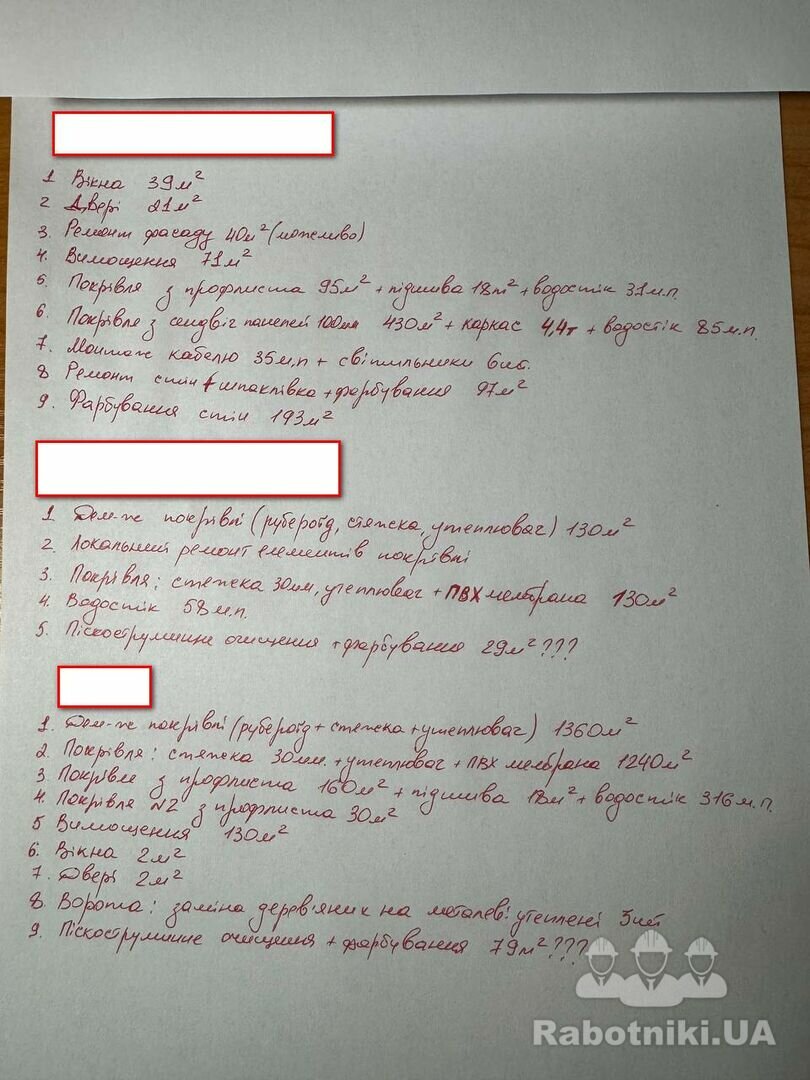 1 Вікна 39м²
2 Двері 21м²
3. Ремонт фасаду 40м² (можливо)
4. Вимощення 71м²
5. Покрівля з профлиста 95м² + підшива 18м² + водостік 31м.п.
6. Покрівля з сендвіч панелей 100мм 430м² + каркас 4,4т + водостік 85м.п.
7. Монтаж кабелю 35м,п + світильники 6шт.
8 Ремонт стін + шпаклівка + фарбування 97м²
9. Фарбування стін 193м²
1 Дем-ж покрівлі (рубероїд, стяжка, утеплювач) 130м²
2. Локальний ремонт елементів покрівлі
3. Покрівля: стяжка 30мм, утеплювач + ПВХ мембрана 130м²
4. Водостік 58м.п.
5. Піскоструминне очищення + фарбування 29м²???
1. Дем-ж покрівлі (рубероїд + стяжка + утеплювач) 1360м²
2. Покрівля: стяжка 30мм. + утеплювач + ПВХ мембрана 1240м²
3 Покрівля з профлиста 160м² + підшива 18м² + водостік 316м.п.
4. Покрівля №2 з профлиста 30м²
5 Вимощення 130м²
6. Вікна 2м²
7. Двері 2м²
8. Ворота: заміна дерев'яних на металеві утеплені 3шт
9. Піскоструминне очищення + фарбування 79м²???
Rabotniki.UA